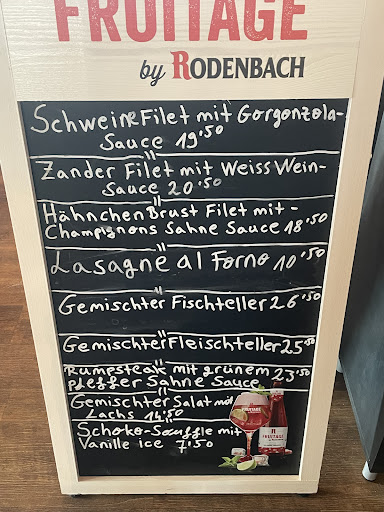 FRUITAGE
by RODENBACH
Schweine Filet mit Gorgonzola-
Sauce 19,50
Zander Filet mit Weiss Wein-
Sauce 20,50
Hähnchen Brust Filet mit -
Champignons Sahne Sauce 18,50
Lasagne al Forno 10,50
Gemischter Fischteller 26,50
Gemischter Fleischteller 25,50
Rumpsteak mit grünem 23,50
pfeffer Sahne Sauce
Gemischter Salat mit
Lachs 14,50
Schoko-Souffle mit
Vanille ice 7,50
FRUITAGE
FRUITAGE